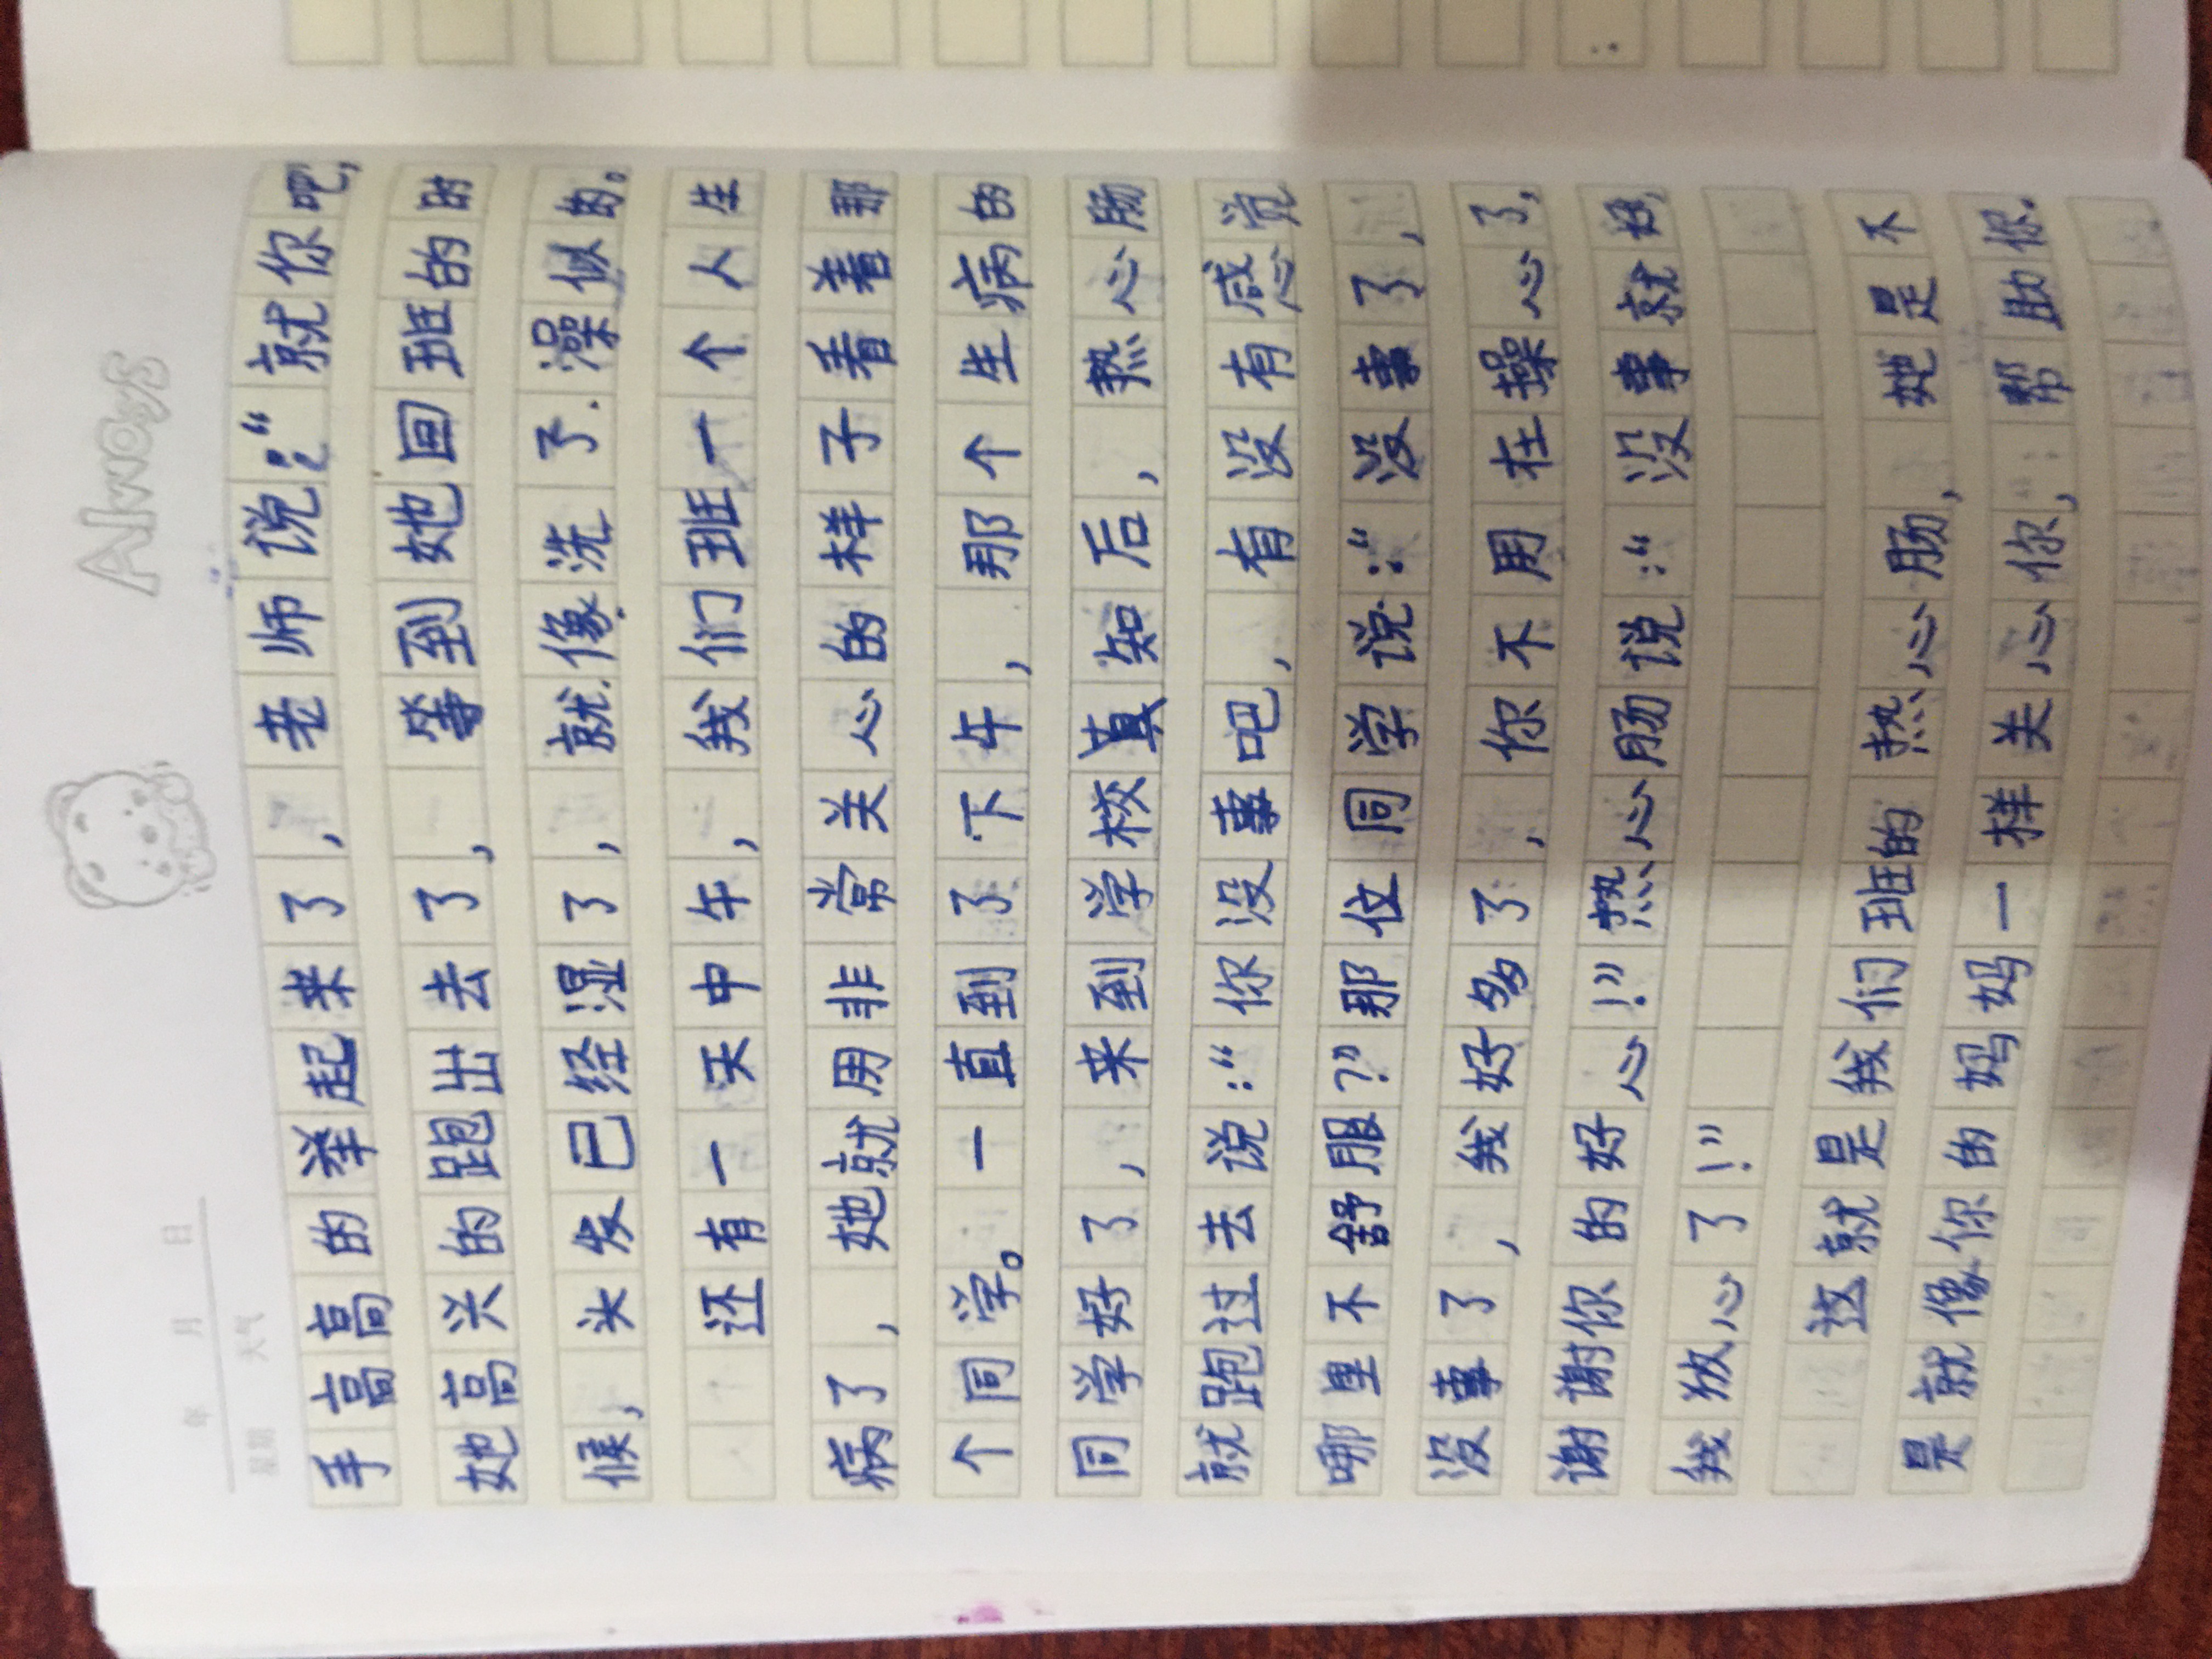 Always
年 月 日
星期 天气
手高高的举起来了，老师说：“就你吧，
她高兴的跑出去了，等到她回班的时
候，头发已经湿了，就像洗了澡似的。
还有一天中午，我们班一个人生
病了，她就用非常关心的样子看着那
个同学。一直到了下午，那个生病的
同学好了，来到学校真知后，热心肠
就跑过去说：“你没事吧，有没有感觉
哪里不舒服？”那位同学说：“没事了，
没事了，我好多了，你不用在操心了，
谢谢你的好心！”热心肠说：“没事就好，
我放心了！”
这就是我们班的热心肠，她是不
是就像你的妈妈一样关心你，帮助你.